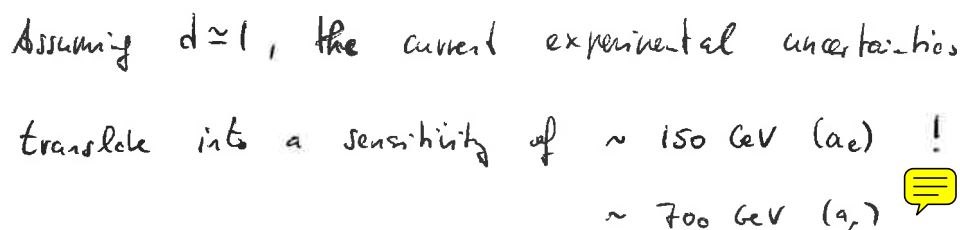 Assuming d ≃ 1, the current experimental uncertainties
translate into a sensitivity of ~ 150 GeV (a_e) !
~ 700 GeV (a_μ)